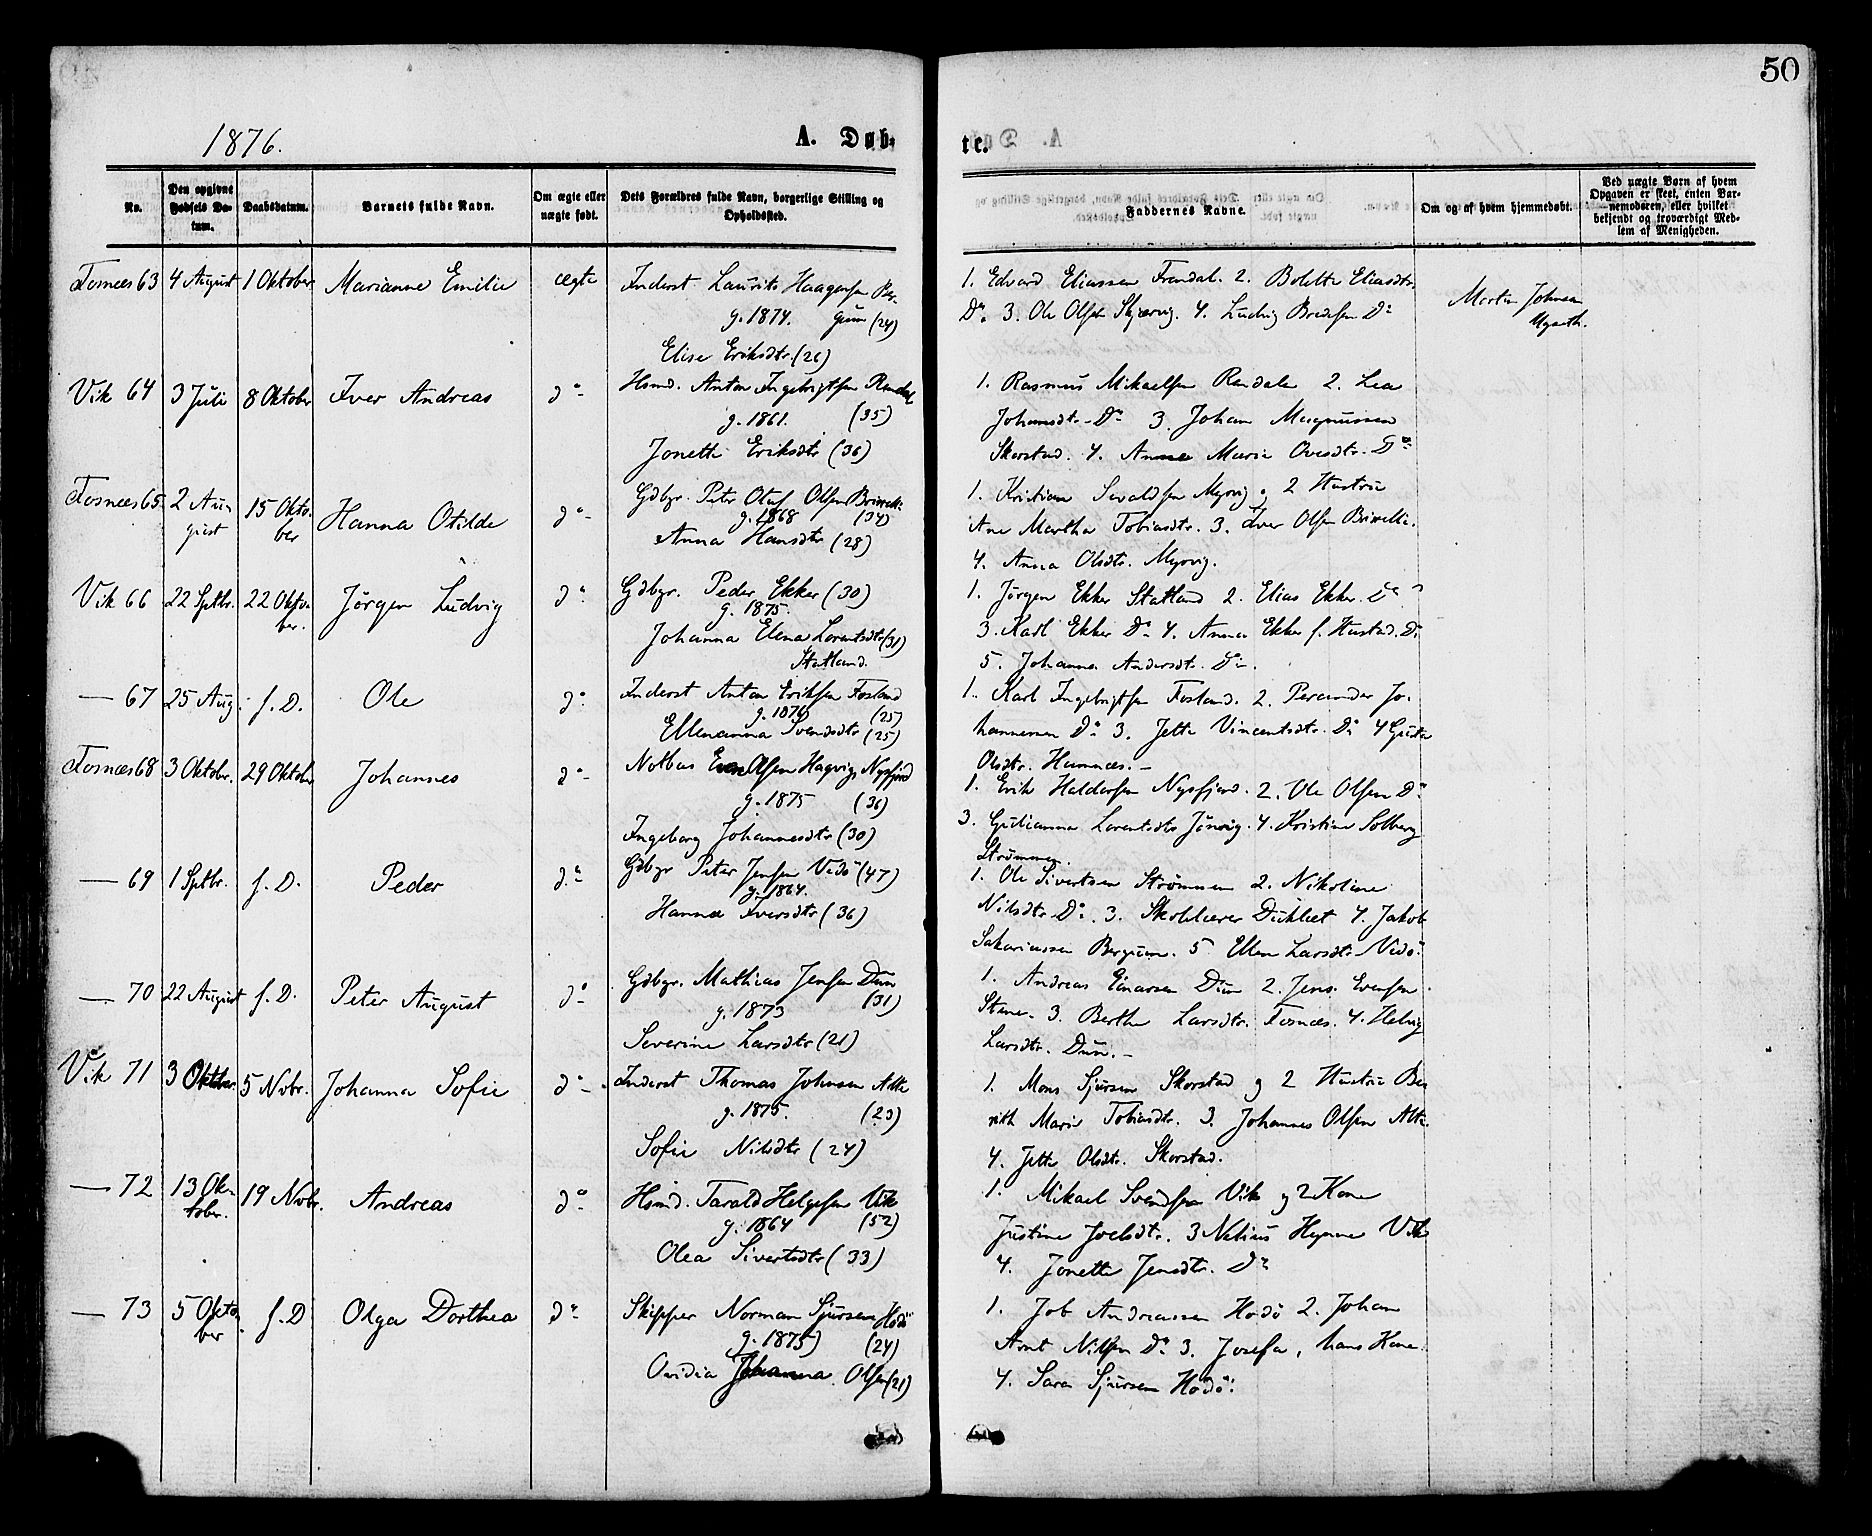 50
1876.
A. Døb-
te.
No.
Den opgivne Fødsels Da-tum.
Daabsdatum.
Barnets fulde Navn.
Om ægte eller uægte født.
Dets Forældres fulde Navn, borgerlige Stilling og Opholdssted.
Faddernes Navne.
Om og af hvem hjemmedøbt.
Ved uægte Børn af hvem Opgaven er skeet, enten Bar-nemoderen, eller hvilket bekjendt og troværdigt Med-lem af Menigheden.
Fosnæs 63 4 August 1 Oktober Marianne Emilie ægte Inderst Laurits Haagensen Ber-
g. 1874. gum (24)
Elise Eriksdtr (26)
1. Edvard Eliassen Frondal. 2. Bolette Eliasdtr.
Do. 3. Ole Olsen Skjærvig. 4. Ludvig Bredesen Do
Martin Johnsen
Myseth.
Vik 64 3 Juli 8 Oktober Iver Andreas do- Hsmd. Anton Ingebrigtsen Rendal
g. 1861. (35)
Jonette Eriksdtr (36)
1. Rasmus Mikaelsen Rendalen 2. Lea
Johansdtr. Do 3. Johan Magnussen
Skorstad. 4. Anna Maria Ovesdtr. Do
Fosnæs 65 2 Au-gust 15 Okto-ber Hanna Otilde do- Gdbgr. Peter Olaf Olsen
g. 1868 (34)
Anna Hansdtr (28)
1. Kristian Sevaldsen Myrvig og 2 Hustru
Ane Martha Tobiasdtr. 3. Iver Olsen
4. Anna Olsdtr. Myrvig.
Vik 66 22 Septbr. 22 Okto-ber. Jørgen Ludvig do- Gdbgr. Peder Ekker (30)
g. 1875.
Johanna Elena Lorentsdtr (31)
Statland.
1. Jørgen Ekker Statland 2. Elias Ekker. Do
3. Karl Ekker Do 4. Anna Ekker f. Hustad. Do
5. Johanna Andersdtr. Do.
— 67 25 Aug. s. D. Ole do Inderst Anton Eriksen Fosland
g. 1876 (25)
Ellenanna Svendsdtr (25)
1. Karl Ingebrigtsen Fosland. 2. Peramder Jo-
hannesen Do 3. Jette Vincentsdtr. Do 4
Olsdtr. Hemnæs. -
Fosnæs 68 3 Oktobr. 29 Oktober Johannes do- Even Olsen Hagvigs Nysfjord
g. 1875 (36)
Ingeborg Johannesdtr (30)
1. Erik Haldorsen Nysfjord. 2. Ole Olsen Do
3. Gjulianna Lorentsdtr 4. Kristine Solberg
Strømmen.
— 69 1 Septbr. s. D. Peder do Gdbgr Peter Jensen Vedø (47)
g. 1864.
Hanna Iversdtr (36)
1. Ole Sivertsen Strømmen 2. Nikoline
Nilsdtr Do. 3. Skolelærer Duklæt 4. Jakob
Sakariassen Bergum. 5 Ellen Larsdtr Vedø.
— 70 22 August s. D. Peter August do Gdbgr. Mathias Jensen Dun
g. 1873 (31)
Severine Larsdtr (21)
1. Andreas Einarsen Dun 2. Jens Evensen
Stene. 3. Berthe Larsdtr. Fosnæs. 4. Helvig
Larsdtr. Dun. -
Vik 71 3 Oktober 5 Nvbr. Johanna Sofie do- Inderst Thomas Johnsen Alte
g. 1875. (23)
Sofie Nilsdtr (24)
1. Mons Sjursen Skorstad og 2 Hustru Be-
rith Marie Tobiasdtr. 3. Johannes Olsen Alte.
4. Jette Olsdtr. Skorstad.
— 72 13 Ok-tober. 19 Nvbr. Andreas do Hsmd. Tarald Helgesen Vik
g. 1864 (52)
Olea Sivertsdtr (33)
1. Mikael Svendsen Vik og 2 Kone
Justine Joelsdtr. 3 Nelius Hynne Vik
4. Jonette Jensdtr. Do
— 73 5 Okto-ber s. D. Olga Dorthea do Skipper Norman Sjursen Hodø
g. 1875) (24)
Ovidia Johanna Olsen (21)
1. Job Andreassen Hodø 2. Johan
Arnt Nilsen Do 3. Josefa, hans Kone
4. Sara Sjursen Hodø.